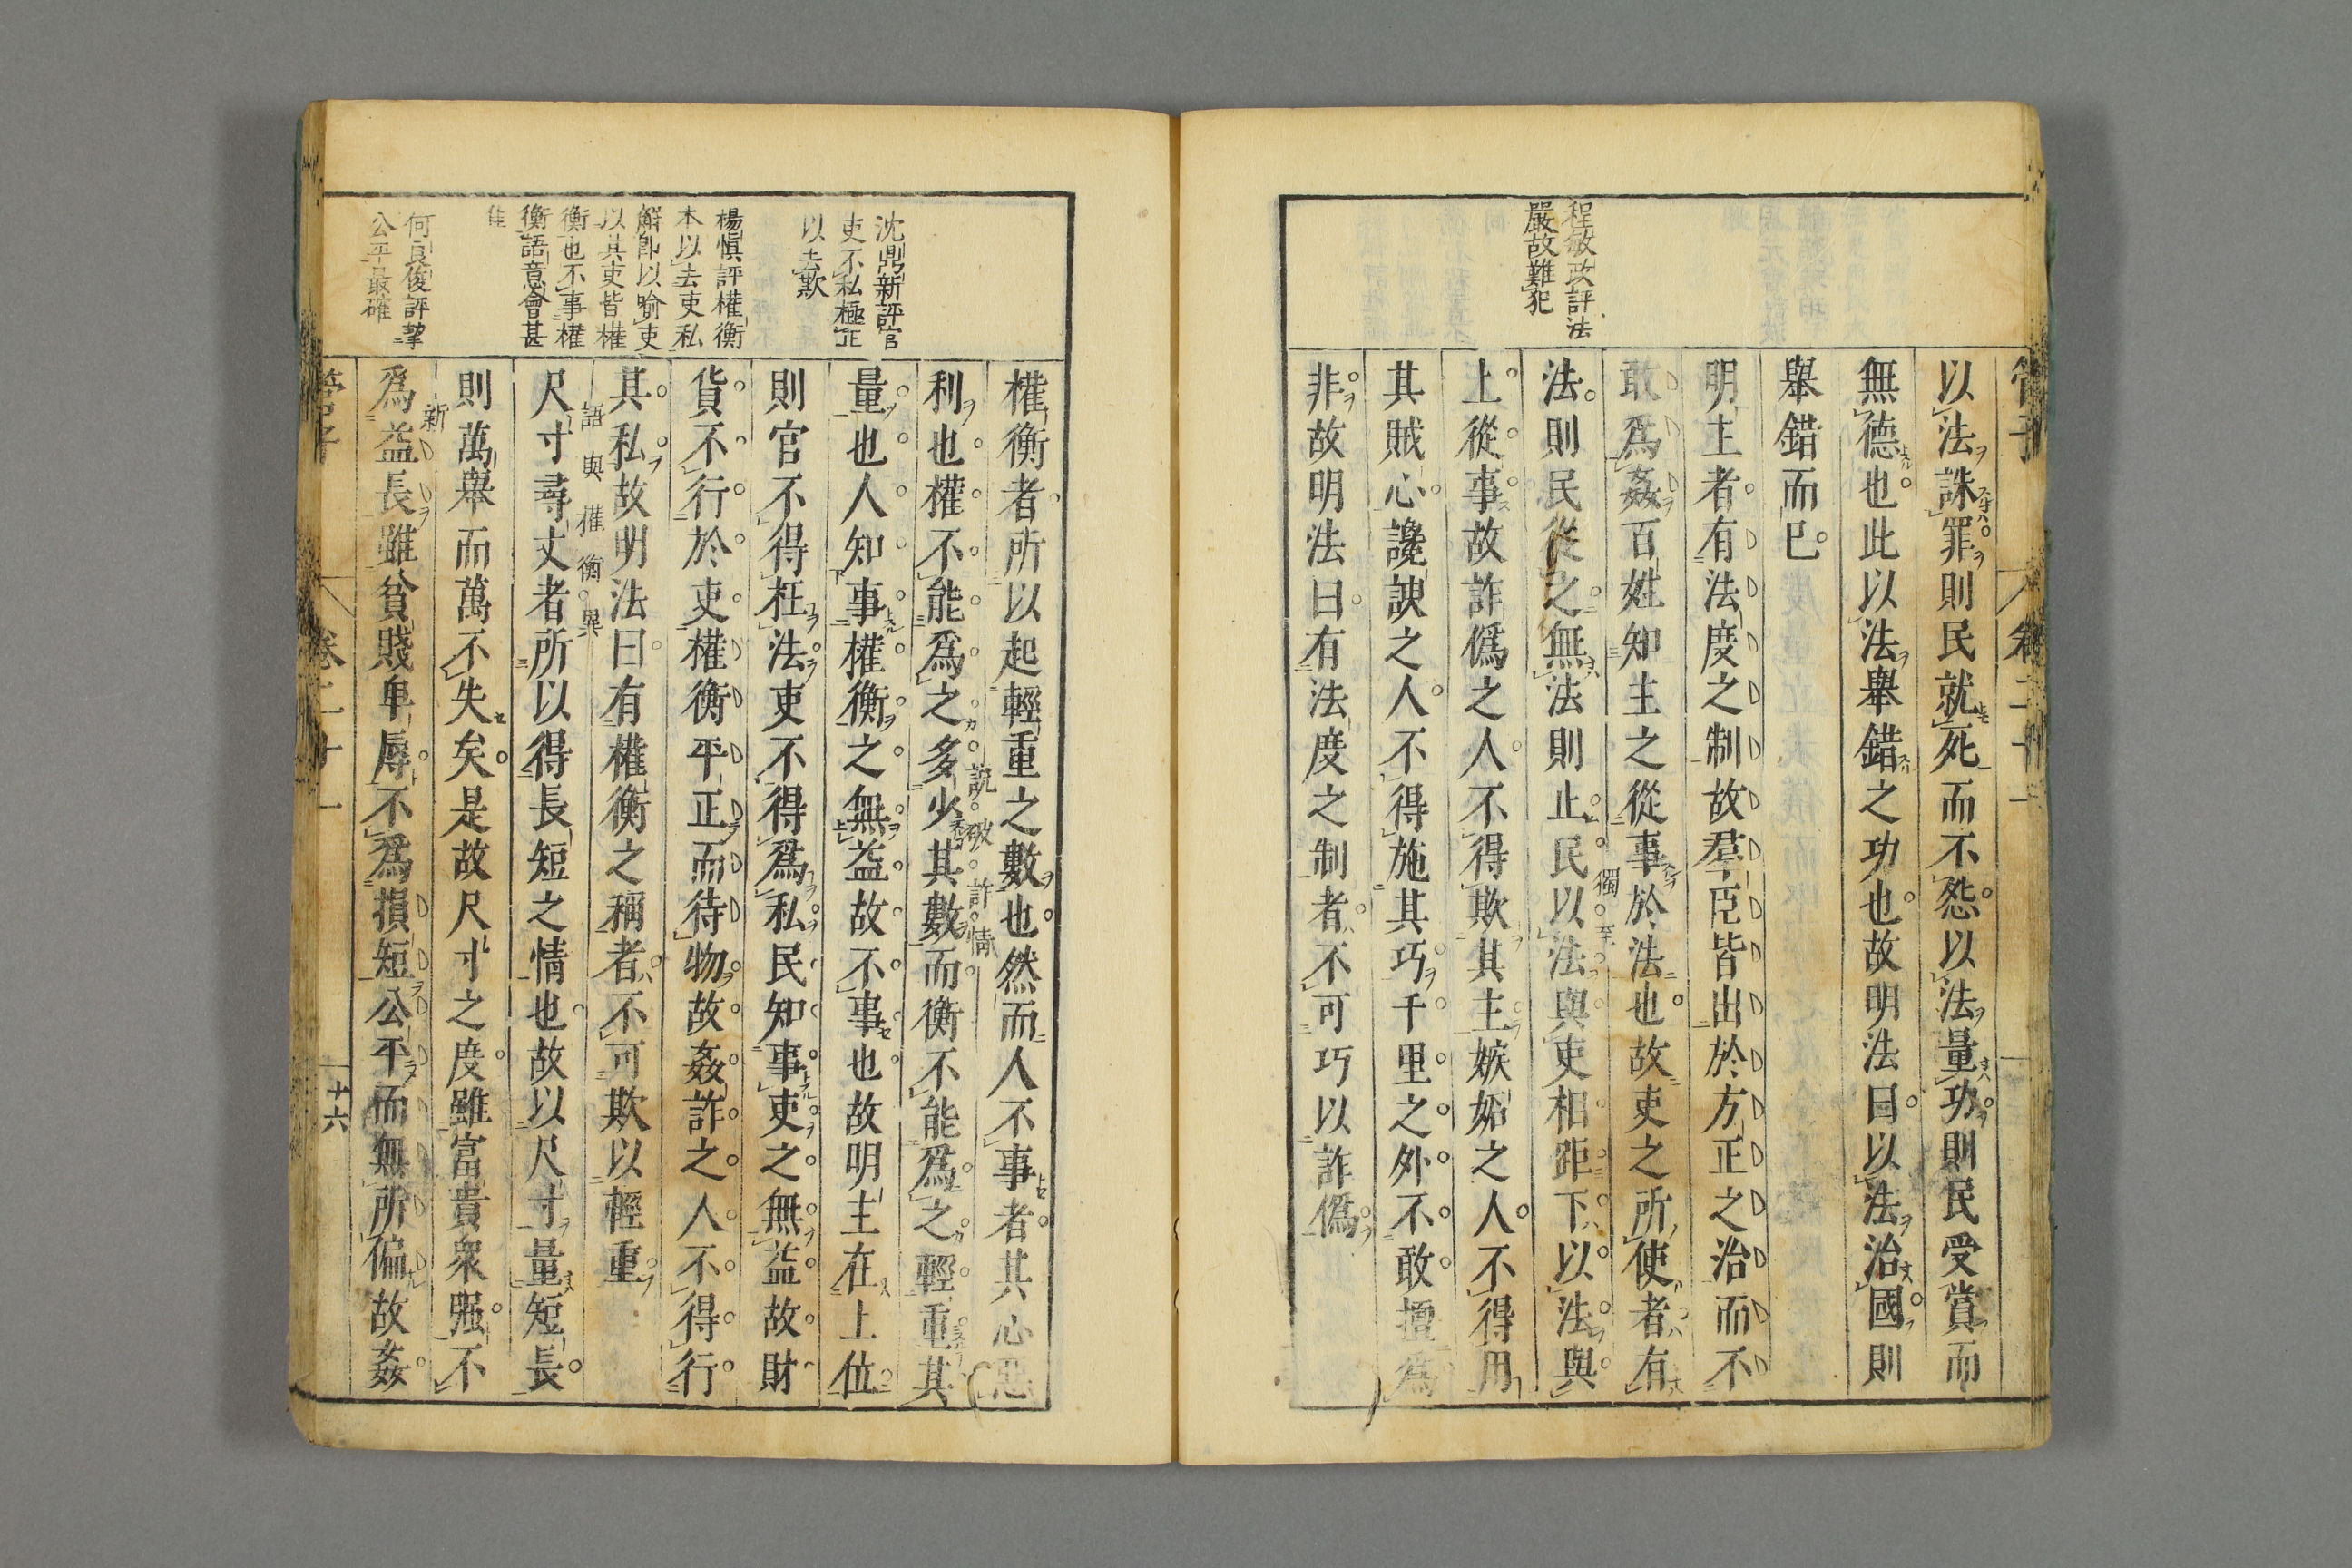 管子
卷二十一
程敏政評法
嚴故難犯
以法誅罪則民就死而不怨以法量功則民受賞而
無德也此以法舉錯之功也故明法曰以法治國則
舉錯而已
明主者有法度之制故羣臣皆出於方正之治而不
敢爲姦百姓知主之從事於法也故吏之所使者有
法則民從之無法則止民以法與吏相距下以法與
獨至
上從事故詐僞之人不得欺其主嫉妬之人不得用
其賊心讒諛之人不得施其巧千里之外不敢擅爲
非故明法曰有法度之制者不可巧以詐僞
沈鼎新評官
吏不私極正
以去欺
楊慎評權衡
本以去吏私
解卽以喻吏
以其吏皆權
衡也不事權
衡語意會甚
佳
何良俊評挈
公平最確
權衡者所以起輕重之數也然而人不事者其心惡
說破詐情
利也權不能爲之多少其數而衡不能爲之輕重其
量也人知事權衡之無益故不事也故明主在上位
則官不得枉法吏不得爲私民知事吏之無益故財
貨不行於吏權衡平正而待物故姦詐之人不得行
其私故明法曰有權衡之稱者不可欺以輕重
語與權衡異
尺寸尋丈者所以得長短之情也故以尺寸量短長
則萬舉而萬不失矣是故尺寸之度雖富貴衆强不
新
爲益長雖貧賤卑辱不爲損短公平而無所偏故姦
管子
卷二十一
十六